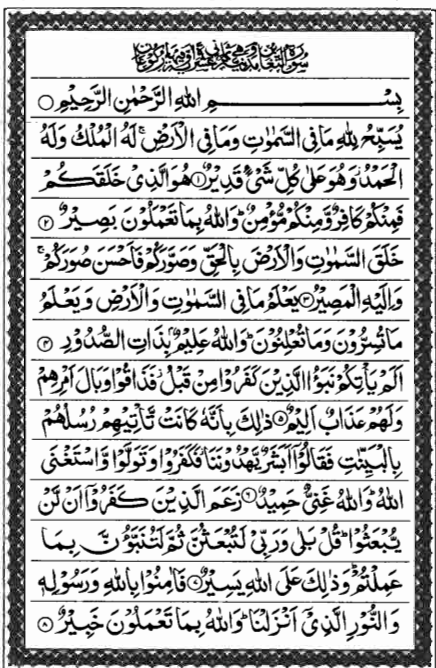 سورة التغابن مدنية وهي ثماني عشرة آية وفيها ركوعان
بِسْمِ اللهِ الرَّحْمٰنِ الرَّحِيْمِ ○
يُسَبِّحُ لِلّٰهِ مَا فِي السَّمٰوٰتِ وَمَا فِي الْاَرْضِ ۚ لَهُ الْمُلْكُ وَلَهُ
الْحَمْدُ ۡ وَهُوَ عَلٰى كُلِّ شَيْءٍ قَدِيْرٌ ۝۱ هُوَ الَّذِيْ خَلَقَكُمْ
فَمِنْكُمْ كَافِرٌ وَّمِنْكُمْ مُّؤْمِنٌ ۭ وَاللّٰهُ بِمَا تَعْمَلُوْنَ بَصِيْرٌ ۝۲
خَلَقَ السَّمٰوٰتِ وَالْاَرْضَ بِالْحَقِّ وَصَوَّرَكُمْ فَاَحْسَنَ صُوَرَكُمْ ۚ
وَاِلَيْهِ الْمَصِيْرُ ۝۳ يَعْلَمُ مَا فِي السَّمٰوٰتِ وَالْاَرْضِ وَيَعْلَمُ
مَا تُسِرُّوْنَ وَمَا تُعْلِنُوْنَ ۭ وَاللّٰهُ عَلِيْمٌۢ بِذَاتِ الصُّدُوْرِ ۝۴
اَلَمْ يَاْتِكُمْ نَبَؤُا الَّذِيْنَ كَفَرُوْا مِنْ قَبْلُ ۡ فَذَاقُوْا وَبَالَ اَمْرِهِمْ
وَلَهُمْ عَذَابٌ اَلِيْمٌ ۝۵ ذٰلِكَ بِاَنَّهٗ كَانَتْ تَّاْتِيْهِمْ رُسُلُهُمْ
بِالْبَيِّنٰتِ فَقَالُوْٓا اَبَشَرٌ يَّهْدُوْنَنَا ۡ فَكَفَرُوْا وَتَوَلَّوْا وَّاسْتَغْنَى
اللّٰهُ ۭ وَاللّٰهُ غَنِيٌّ حَمِيْدٌ ۝۶ زَعَمَ الَّذِيْنَ كَفَرُوْٓا اَنْ لَّنْ
يُّبْعَثُوْا ۭ قُلْ بَلٰى وَرَبِّيْ لَتُبْعَثُنَّ ثُمَّ لَتُنَبَّؤُنَّ بِمَا
عَمِلْتُمْ ۭ وَذٰلِكَ عَلَى اللّٰهِ يَسِيْرٌ ۝۷ فَاٰمِنُوْا بِاللّٰهِ وَرَسُوْلِهٖ
وَالنُّوْرِ الَّذِيْٓ اَنْزَلْنَا ۭ وَاللّٰهُ بِمَا تَعْمَلُوْنَ خَبِيْرٌ ۝۸